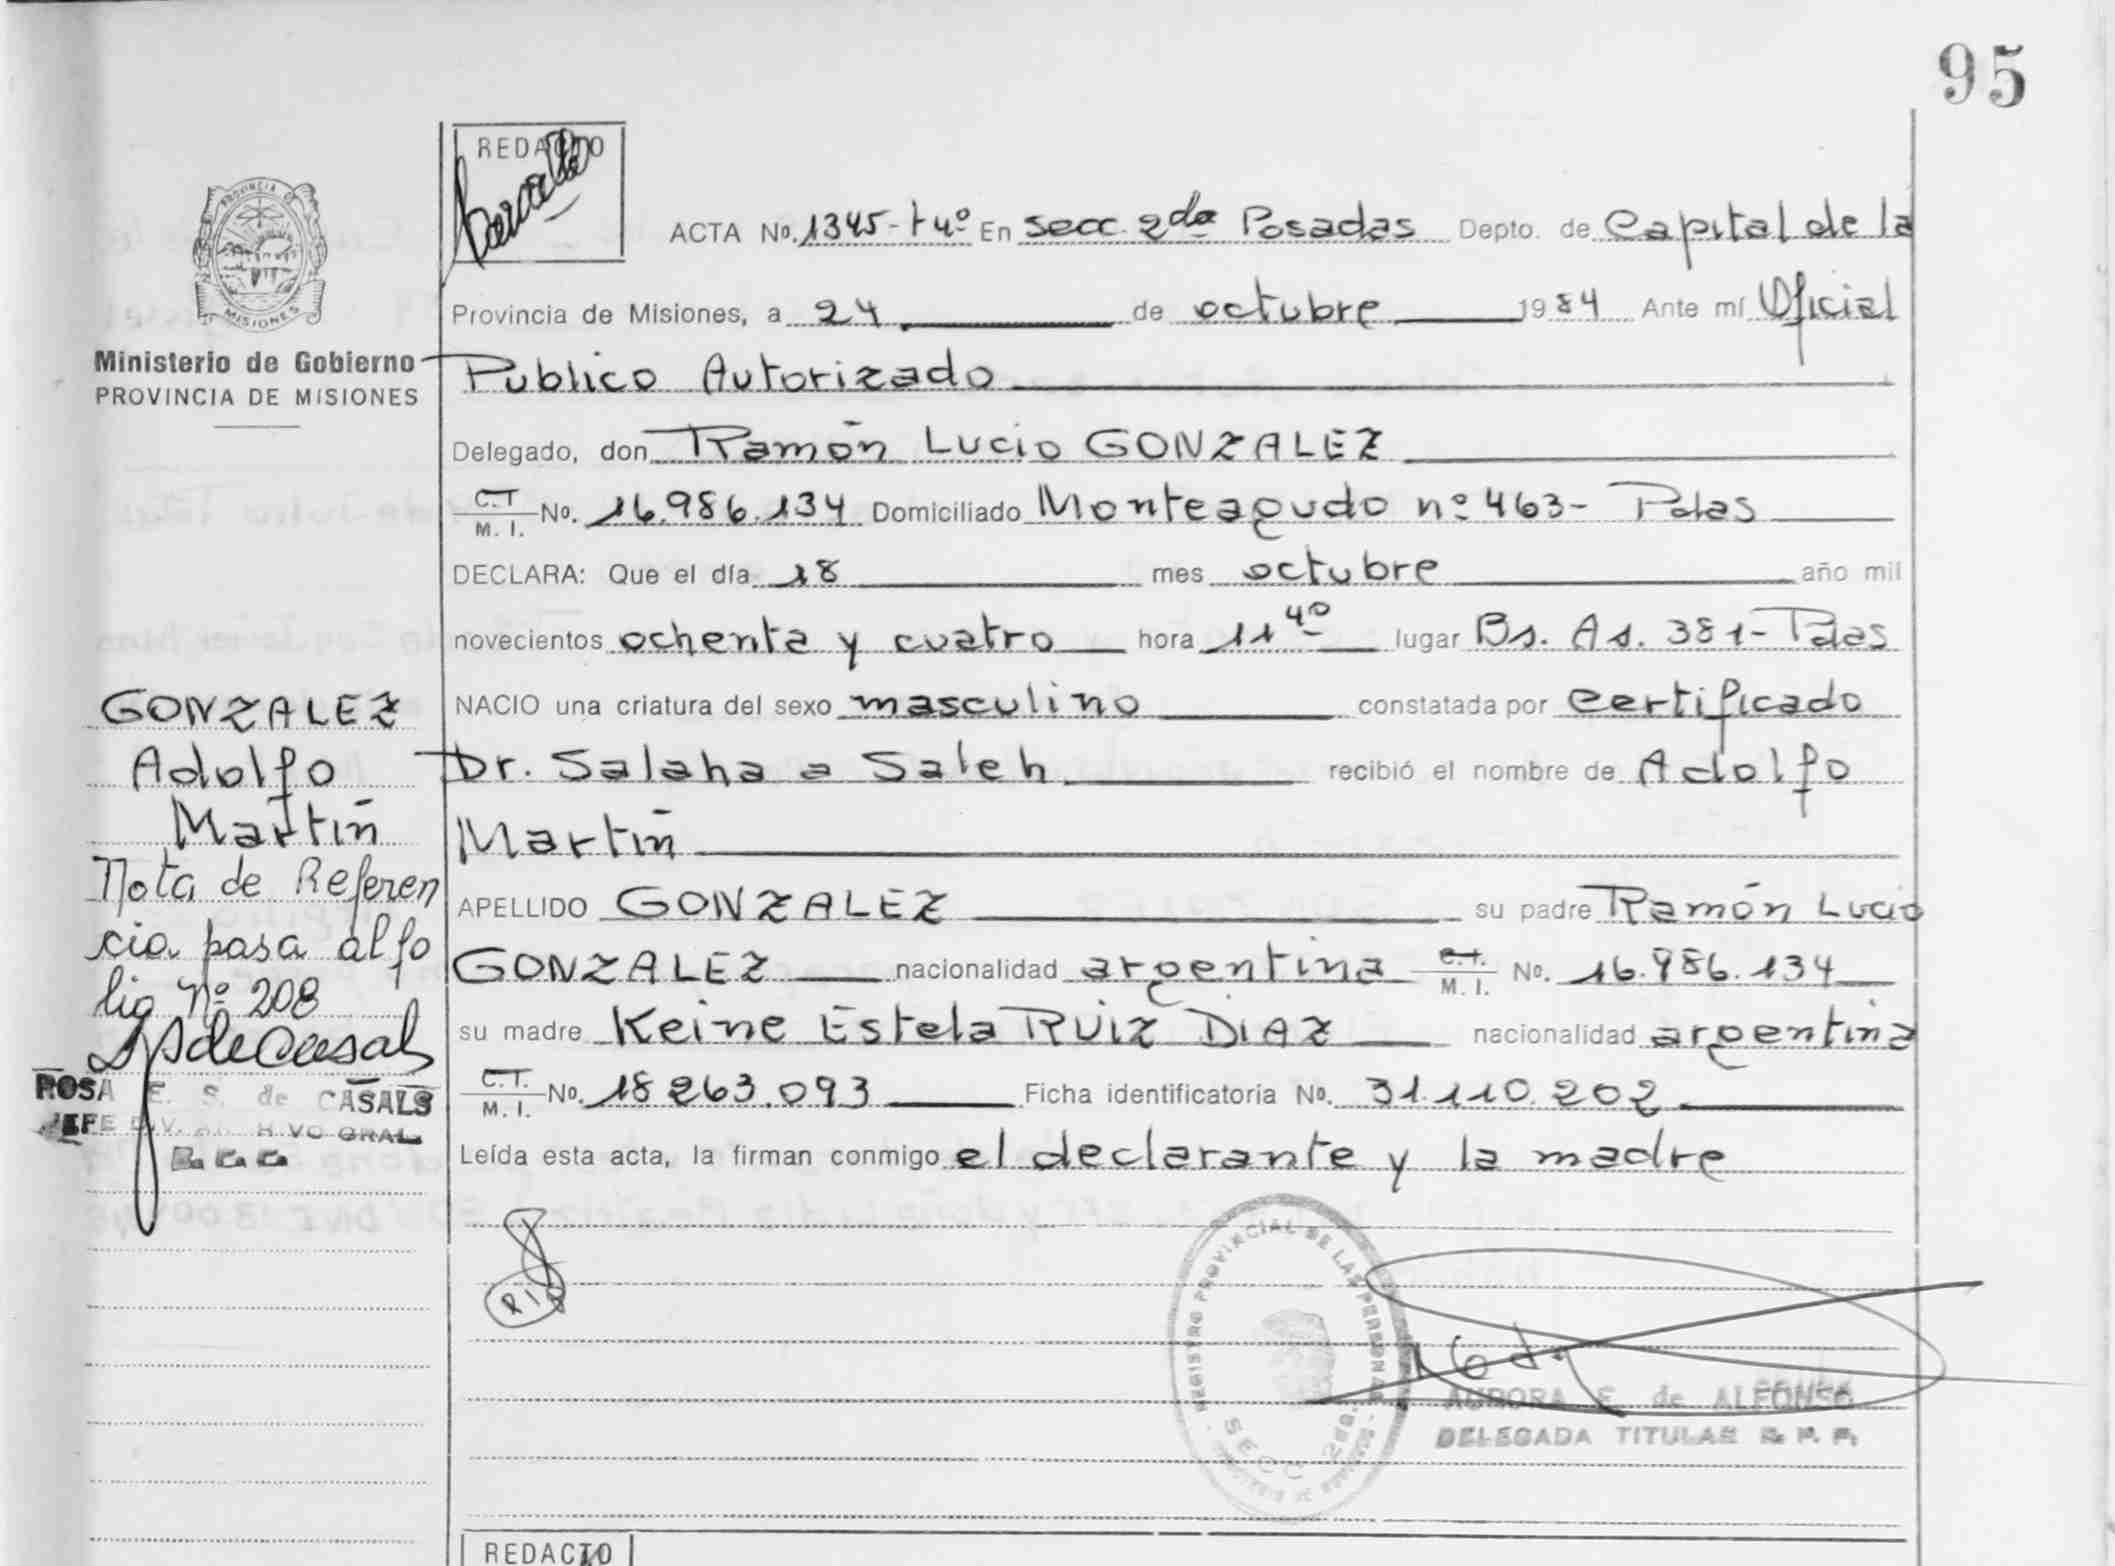 95
REDACTO
PROVINCIA DE
MISIONES
Ministerio de Gobierno
PROVINCIA DE MISIONES
ACTA No. 1345-t 4º En Secc. 2da Posadas Depto. de Capital de la
Provincia de Misiones, a 24 de octubre 1984 Ante mí Oficial
Publico Autorizado
Delegado, don Ramón Lucio GONZALEZ
C.T. M. I. No. 16.986.134 Domiciliado Monteagudo nº 463- Pdas
DECLARA: Que el día 18 mes octubre año mil
novecientos ochenta y cuatro hora 11 40 lugar Bs. As. 381- Pdas
NACIO una criatura del sexo masculino constatada por certificado
Dr. Salaha a Saleh recibió el nombre de Adolfo
Martín
APELLIDO GONZALEZ su padre Ramón Lucio
GONZALEZ nacionalidad argentina C.T. M. I. No. 16.986.134
su madre Keine Estela RUIZ DIAZ nacionalidad argentina
C.T. M. I. No. 18 263.093 Ficha identificatoria No. 31.110.202
Leída esta acta, la firman conmigo el declarante y la madre
GONZALEZ
Adolfo
Martín
Nota de Referen
cia pasa al fo
lio Nº 208
ROSA E. S. de CASALS
JEFE DIV. ARCHIVO GRAL.
REGISTRO PROVINCIAL DE LAS PERSONAS
SECC. 2da.
AURORA E de ALFONSO
DELEGADA TITULAR R. P. P.
REDACTO